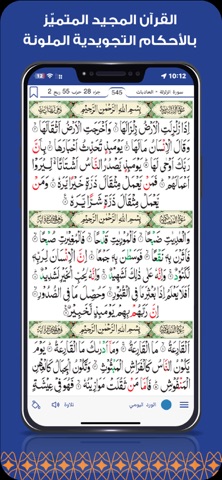 القرآن المجيد المتميّز
بالأحكام التجويدية الملونة
10:12
سورة الزلزلة - العاديات 545 جزء 28 حزب 55 ربع 2
بِسْمِ اللَّهِ الرَّحْمَٰنِ الرَّحِيمِ
إِذَا زُلْزِلَتِ الْأَرْضُ زِلْزَالَهَا ۝ وَأَخْرَجَتِ الْأَرْضُ أَثْقَالَهَا ۝
وَقَالَ الْإِنسَانُ مَا لَهَا ۝ يَوْمَئِذٍ تُحَدِّثُ أَخْبَارَهَا ۝
بِأَنَّ رَبَّكَ أَوْحَىٰ لَهَا ۝ يَوْمَئِذٍ يَصْدُرُ النَّاسُ أَشْتَاتًا لِّيُرَوْا
أَعْمَالَهُمْ ۝ فَمَن يَعْمَلْ مِثْقَالَ ذَرَّةٍ خَيْرًا يَرَهُ ۝ وَمَن
يَعْمَلْ مِثْقَالَ ذَرَّةٍ شَرًّا يَرَهُ ۝
بِسْمِ اللَّهِ الرَّحْمَٰنِ الرَّحِيمِ
وَالْعَادِيَاتِ ضَبْحًا ۝ فَالْمُورِيَاتِ قَدْحًا ۝ فَالْمُغِيرَاتِ صُبْحًا ۝
فَأَثَرْنَ بِهِ نَقْعًا ۝ فَوَسَطْنَ بِهِ جَمْعًا ۝ إِنَّ الْإِنسَانَ لِرَبِّهِ
لَكَنُودٌ ۝ وَإِنَّهُ عَلَىٰ ذَٰلِكَ لَشَهِيدٌ ۝ وَإِنَّهُ لِحُبِّ الْخَيْرِ لَشَدِيدٌ ۝
أَفَلَا يَعْلَمُ إِذَا بُعْثِرَ مَا فِي الْقُبُورِ ۝ وَحُصِّلَ مَا فِي الصُّدُورِ ۝
إِنَّ رَبَّهُم بِهِمْ يَوْمَئِذٍ لَّخَبِيرٌ ۝
بِسْمِ اللَّهِ الرَّحْمَٰنِ الرَّحِيمِ
الْقَارِعَةُ ۝ مَا الْقَارِعَةُ ۝ وَمَا أَدْرَاكَ مَا الْقَارِعَةُ ۝ يَوْمَ
يَكُونُ النَّاسُ كَالْفَرَاشِ الْمَبْثُوثِ ۝ وَتَكُونُ الْجِبَالُ كَالْعِهْنِ
الْمَنفُوشِ ۝ فَأَمَّا مَن ثَقُلَتْ مَوَازِينُهُ ۝ فَهُوَ فِي عِيشَةٍ
الورد اليومي تلاوة